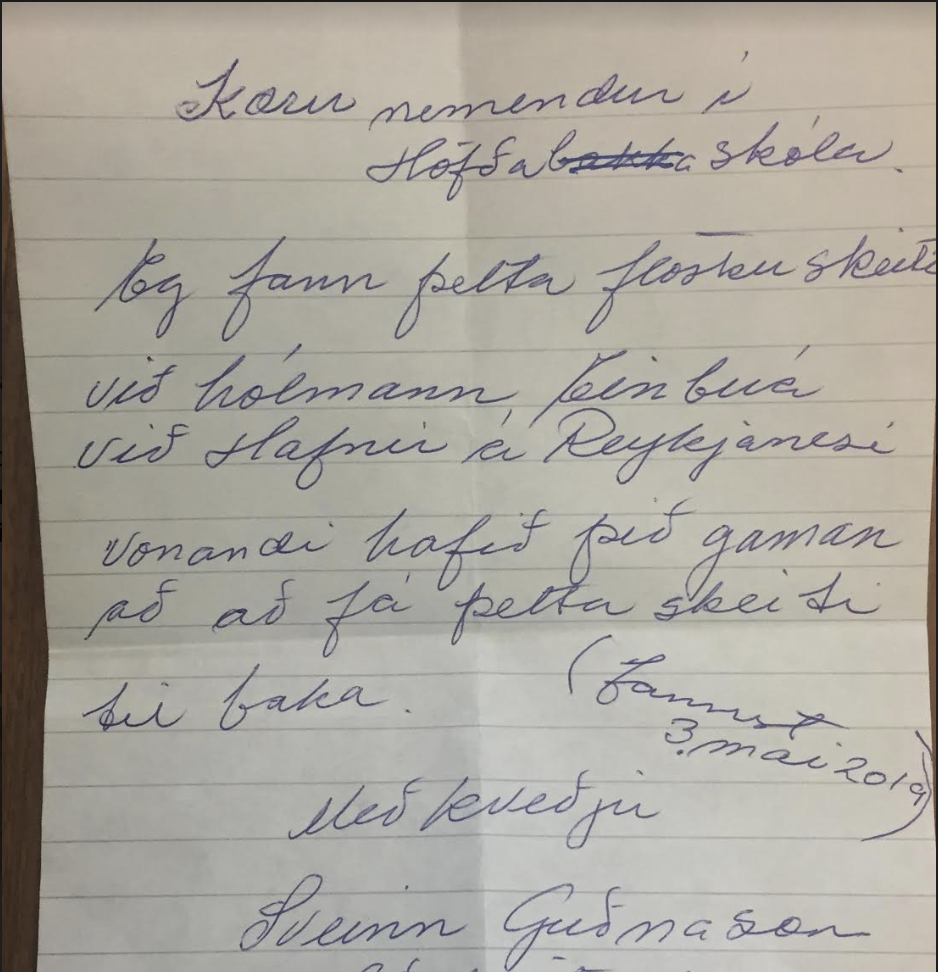 Kæru nemendur í
Höfðabakkaskóla.
Eg fann þetta flösku skeiti
við hólmann, Einbúa
við Hafnir á Reykjanesi
Vonandi hafið þið gaman
að að fá þetta skeiti
til baka.
(Fannst
3. mai 2019)
Með kveðju
Sveinn Guðnason